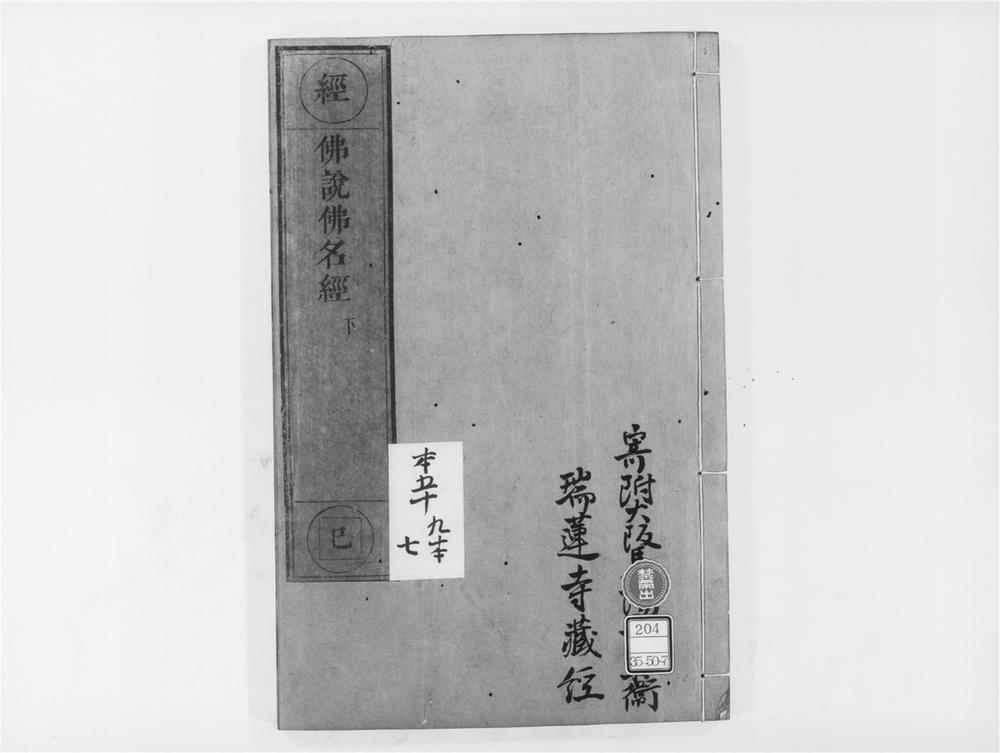 經
佛說佛名經
下
巳
本五十
九本
七
寄附大阪
衞
瑞蓮寺藏經
禁帶出
204
35-50-7